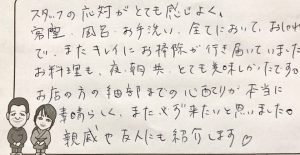 スタッフの応対がとても感じよく、
客室、風呂、お手洗い、全てにおいて、おしゃれ
で、またキレイにお掃除が行き届いていました
お料理も、夜、朝共、とても美味しかったです。
お店の方の細部までの心配りが本当に
素晴らしく、また必ず来たいと思いました。
親戚や友人にも紹介します♡